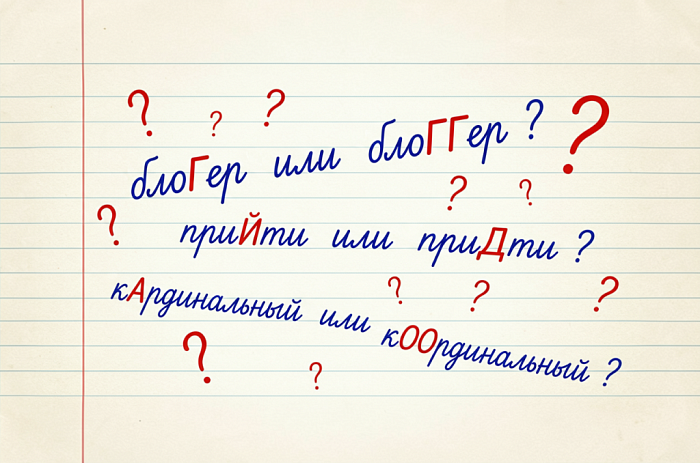 блоГер или блоГГер ?
прийти или приДти ?
кАрдинальный или кООрдинальный ?